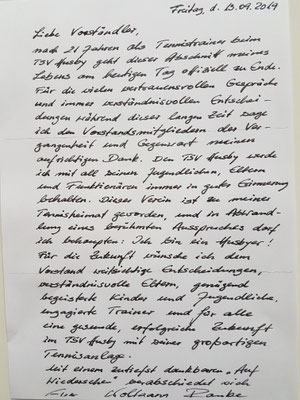 Freitag, d. 13.09.2019
Liebe Vorständler,
nach 21 Jahren als Tennistrainer beim
TSV Husby geht dieser Abschnitt meines
Lebens am heutigen Tag offiziell zu Ende.
Für die vielen vertrauensvollen Gespräche
und immer verständnisvollen Entschei-
dungen während dieser langen Zeit sage
ich den Vorstandsmitgliedern der Ver-
gangenheit und Gegenwart meinen
aufrichtigen Dank. Den TSV Husby werde
ich mit all seinen Jugendlichen, Eltern
und Funktionären immer in guter Erinnerung
behalten. Dieser Verein ist zu meiner
Tennisheimat geworden, und in Abwand-
lung eines berühmten Ausspruches darf
ich behaupten: Ich bin ein Husbyer!
Für die Zukunft wünsche ich dem
Vorstand weitsichtige Entscheidungen,
verständnisvolle Eltern, genügend
begeisterte Kinder und Jugendliche,
engagierte Trainer und für alle
eine gesunde, erfolgreiche Zukunft
im TSV Husby mit seiner großartigen
Tennisanlage.
Mit einem zutiefst dankbaren "Auf
Wiedersehen" verabschiedet sich